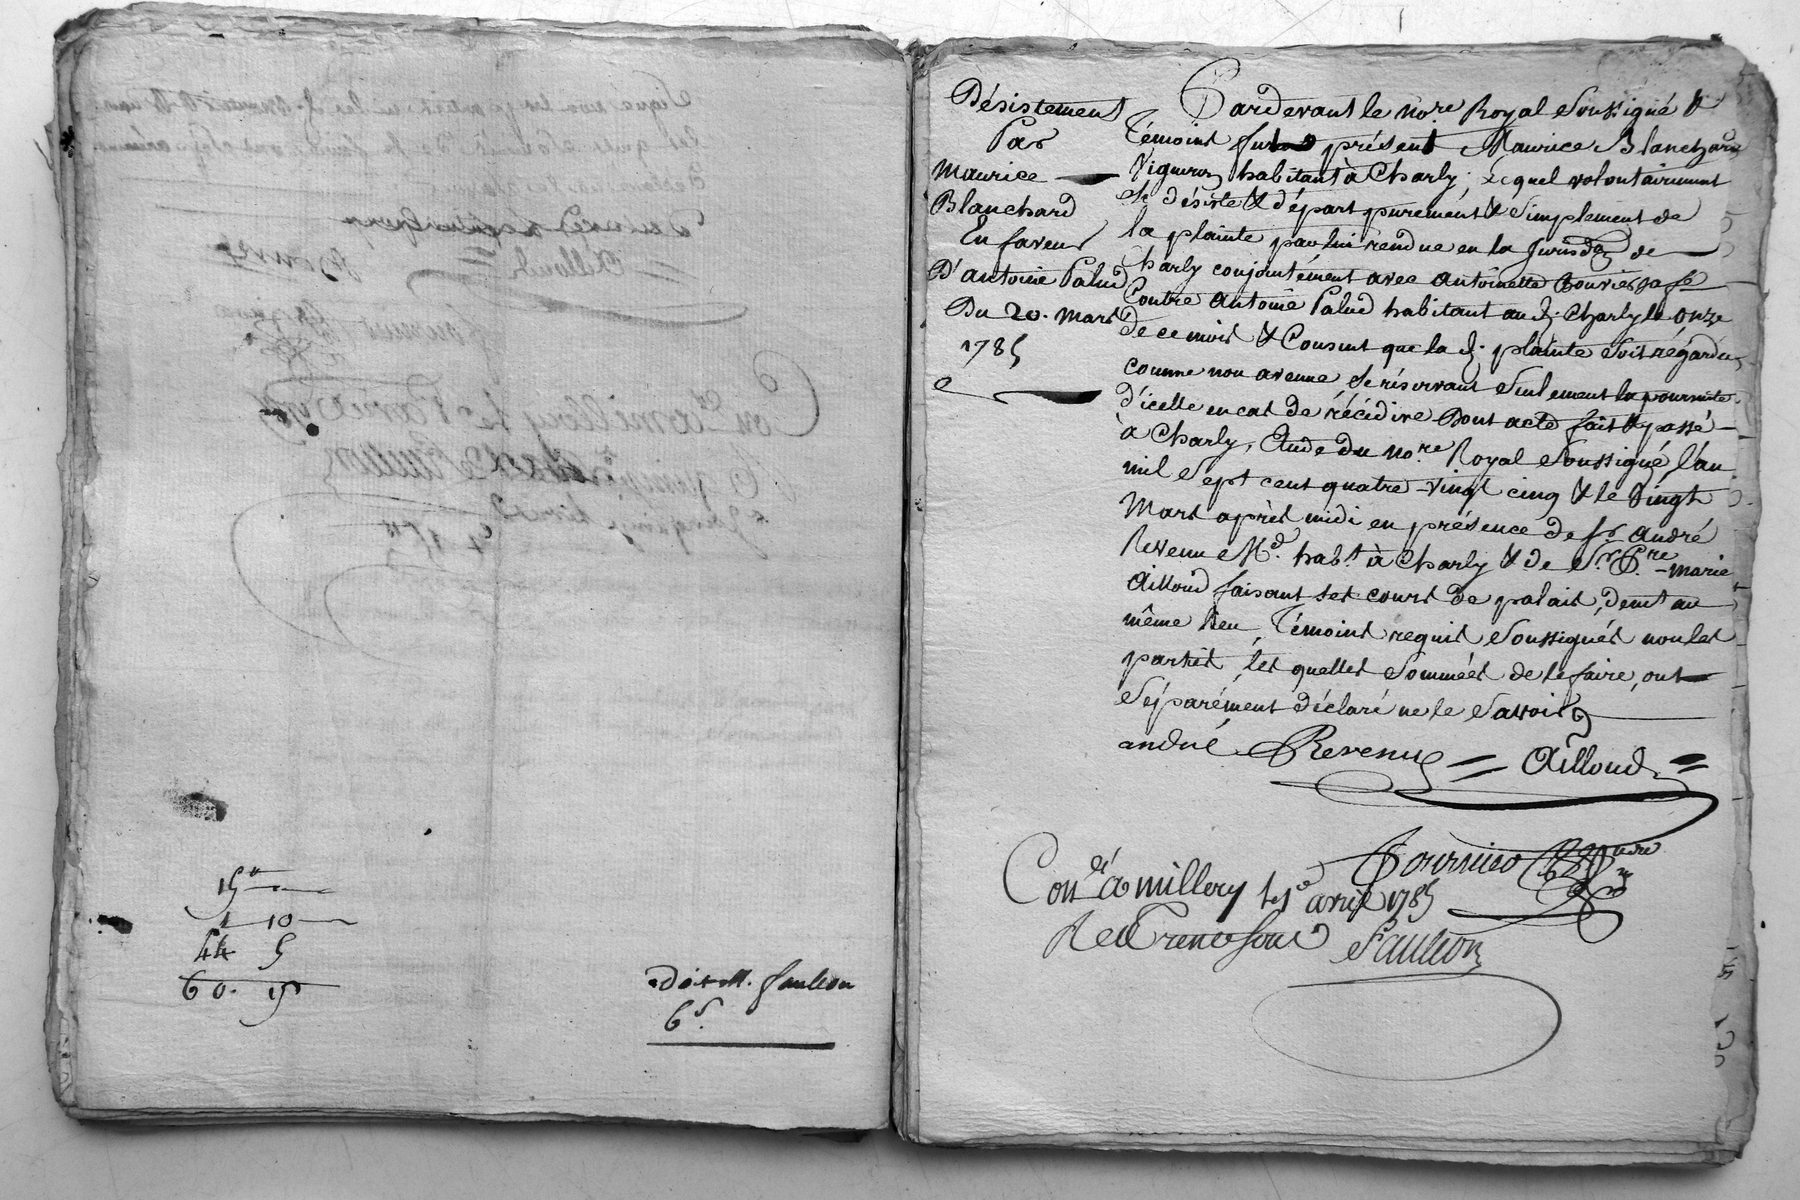 15ᵗᵗ
1 10
44 5
60. 15
doit M. faulion
6ˢ.
Désistement
Par
Maurice
Blanchard
En faveur
D'antoine Palud
Du 20. Mars
1785
Pardevant le no.re Royal Soussigné &
Témoins fut présent Maurice Blanchard
Vigneron habitant à Charly, Lequel volontairement
se désiste & départ purement & simplement de
la plainte par lui rendue en la Jurisd.on de
Charly conjointément avec Antoinette Bouvier sa fe
Contre Antoine Palud habitant au d. Charly le onze
de ce mois & Consent que la d. plainte soit régardée
comme non avenue se réservant seulement la poursuite
d'icelle en cas de récidive Dont acte fait & passé
à Charly, Etude du no.re Royal Soussigné l'an
mil sept cent quatre-vingt cinq & le vingt
Mars après midi en présence de sr. André
Revenu Md. hab.t à Charly & de Sr. P.re-marie
Ailloud faisant ses cours de palais, demt au
même lieu, Témoins requis Soussignés non les
parties, les quelles sommées de le faire, ont
séparément déclaré ne le savoir
andré Revenu Ailloud
Fournier
Con.lé à millery le 1e avril 1785
Reçu Trente sous Faulion